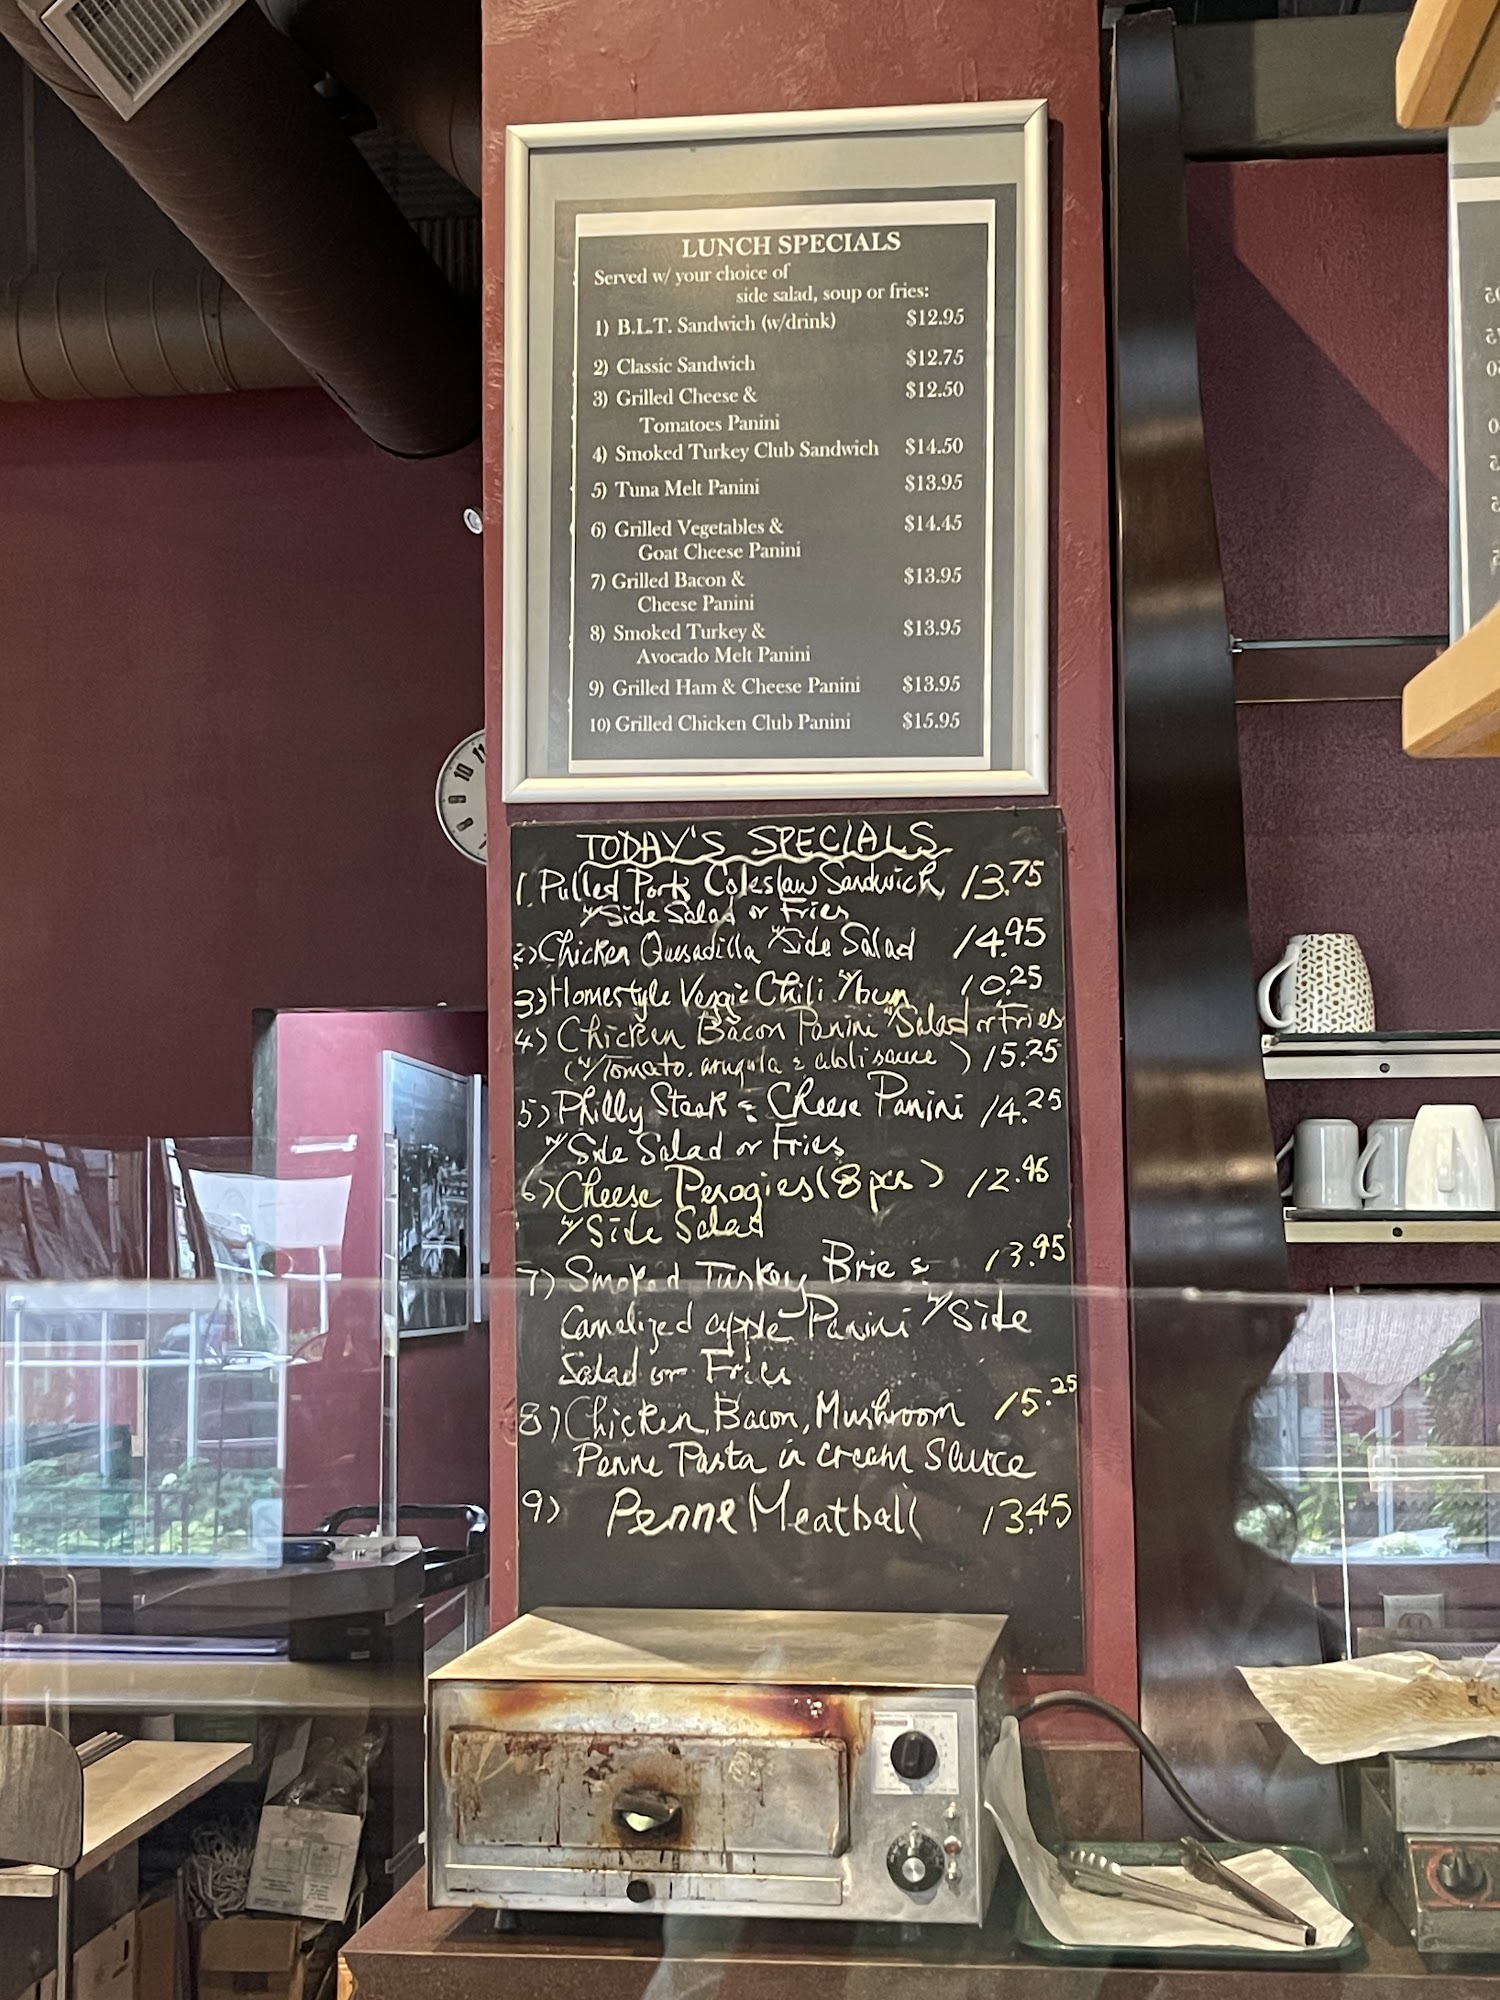 LUNCH SPECIALS
Served w/ your choice of
side salad, soup or fries:
1) B.L.T. Sandwich (w/drink) $12.95
2) Classic Sandwich $12.75
3) Grilled Cheese & $12.50
Tomatoes Panini
4) Smoked Turkey Club Sandwich $14.50
5) Tuna Melt Panini $13.95
6) Grilled Vegetables & $14.45
Goat Cheese Panini
7) Grilled Bacon & $13.95
Cheese Panini
8) Smoked Turkey & $13.95
Avocado Melt Panini
9) Grilled Ham & Cheese Panini $13.95
10) Grilled Chicken Club Panini $15.95
TODAY'S SPECIALS
1. Pulled Pork Coleslaw Sandwich 13.75
w/Side Salad or Fries
2) Chicken Quesadilla w/Side Salad 14.95
3) Homestyle Veggie Chili w/bun 10.25
4) Chicken Bacon Panini w/Salad or Fries
(w/Tomato, arugula & aioli sauce) 15.25
5) Philly Steak & Cheese Panini 14.25
w/ Side Salad or Fries
6) Cheese Perogies (8 pcs) 12.95
w/ Side Salad
7) Smoked Turkey Brie & 13.95
Camelized apple Panini w/ Side
Salad or Fries
8) Chicken, Bacon, Mushroom 15.25
Penne Pasta in cream Sauce
9) Penne Meatball 13.45
10 11